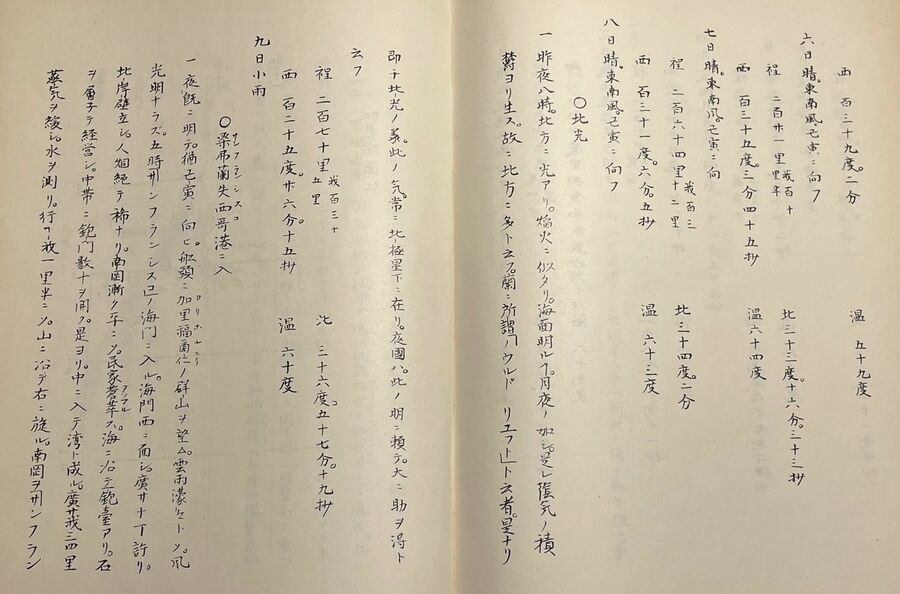 西 百三十九度。二分 温 五十九度
六日晴。東南風。己寅ニ向フ
程 二百廿一里 我百十里半 北三十三度。十六分。二十三抄
西 百三十五度。三分四十五抄 温六十四度
七日晴。東南風。己寅ニ向
程 二百六十四里 我百三十二里 北三十四度。二分
西 百三十一度。六分。五抄 温 六十三度
八日晴。東南風。己寅ニ向フ
〇北光
一 昨夜八時。北方ニ光アリ。焔火ニ似タリ。海面明ル了。月夜ノ如シ。是レ陰気ノ積
鬱ヨリ生ス。故ニ北方ニ多ト云フ。蘭ニ所謂「ノウルド リユフト」ト云者。是ナリ
即チ北光ノ義。此ノ気。常ニ北極星下ニ在リ。夜國ハ。此ノ明ニ頼テ。大ニ助ヲ得ト
云フ
程 二百七十里 我百三十五里 北 三十六度。五十七分。十九抄
西 百二十五度。廿六分。十五抄 温 六十度
九日小雨
〇桑弗蘭失西哥港ニ入 サンフランシスコ
一 夜既ニ明テ。猶己寅ニ向ヒ。舩頭ニ加里福爾仁ノ群山ヲ望ム。雲雨濛々トソ。風 カリホルニイ
光明ナラズ。五時サンフランシスコノ海門ニ入ル。海門西ニ面シ。廣サ十丁許リ。
北岸壁立シ。人烟絶テ稀ナリ。南岡漸ク平ニソ。民家蒼華ス。海ニ沿テ砲臺アリ。石
ヲ層子テ経営シ。中帯ニ砲門数十ヲ開ク。是ヨリ。中ニ入テ湾ト成ル。廣サ我三四里
蒸気ヲ緩シ。水ヲ測リ。行ク我一里半ニソ。山ニ沿テ右ニ旋ル。南岡ヲサンフラン